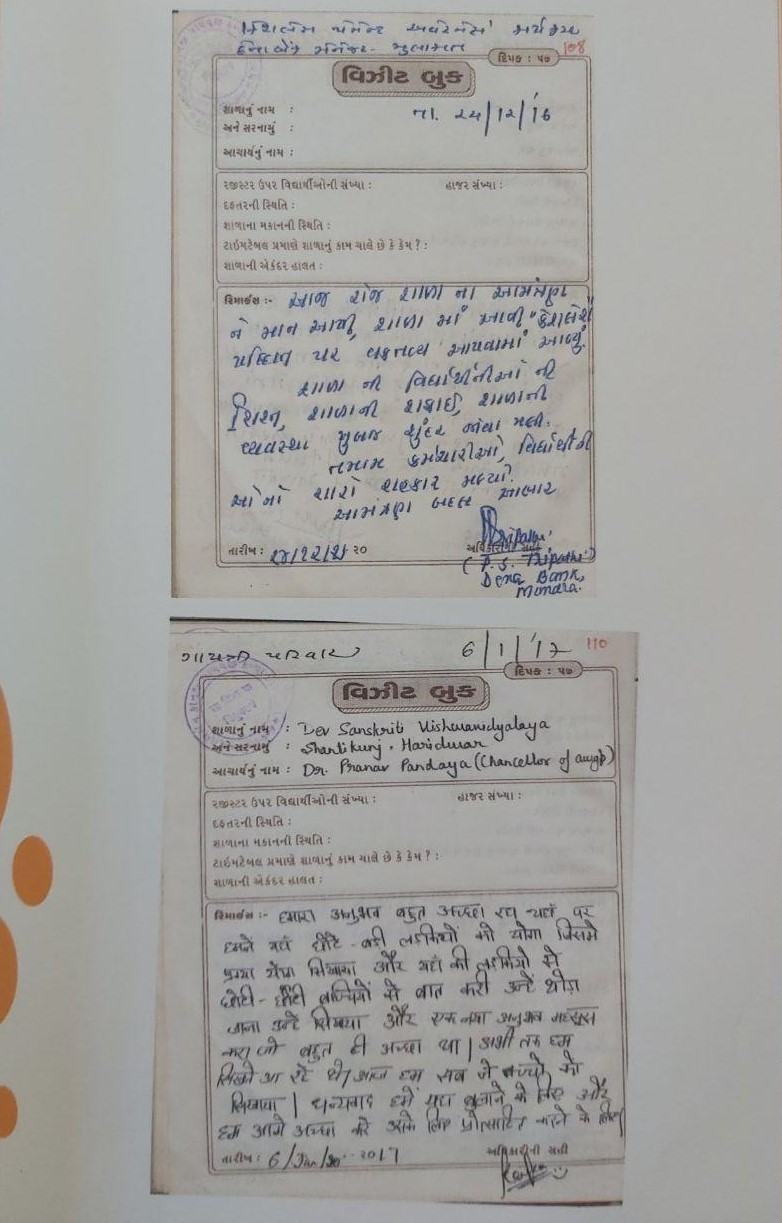 કેશલેસ પેમેન્ટ અવેરનેસ કાર્યક્રમ
દેના બેંક મેનેજર - મુલાકાત
108
દિપક : ૫૭
વિઝીટ બુક
શાળાનું નામ :
તા. ૨૪/૧૨/'16
અને સરનામું :
આચાર્યનું નામ :
રજીસ્ટર ઉપર વિદ્યાર્થીઓની સંખ્યા : હાજર સંખ્યા :
દફતરની સ્થિતિ :
શાળાના મકાનની સ્થિતિ :
ટાઇમટેબલ પ્રમાણે શાળાનું કામ ચાલે છે કે કેમ ? :
શાળાની એકંદર હાલત :
રિમાર્કસ :- આજ રોજ શાળા ના આમંત્રણ
ને માન આપી, શાળા માં આવી "કેશલેશ
પધ્ધિત પર વકતવ્ય આપવામાં આવ્યું.
શાળા ની વિર્ધાથીનીઓ ની
શિસ્ત, શાળાની સફાઈ, શાળાની
વ્યવસ્થા ખુબજ સુંદર જોવા મળી.
તમામ કર્મચારીઓ, વિર્ધાથીની
ઓનો સારો સહકાર મલ્યો.
આમંત્રણ બદલ આભાર
તારીખ : ૨૦ અધિકારીની સહી
(P. S. Tripathi)
Dena Bank,
Mundra.
ગાયત્રી પરિવાર 6/1/'17 110
દિપક : ૫૭
વિઝીટ બુક
શાળાનું નામ : Dev Sanskriti Vishwavidyalaya
અને સરનામું : Shantikunj, Haridwar
આચાર્યનું નામ : Dr. Pranav Pandaya (Chancellor of awgp)
રજીસ્ટર ઉપર વિદ્યાર્થીઓની સંખ્યા : હાજર સંખ્યા :
દફતરની સ્થિતિ :
શાળાના મકાનની સ્થિતિ :
ટાઇમટેબલ પ્રમાણે શાળાનું કામ ચાલે છે કે કેમ ? :
શાળાની એકંદર હાલત :
રિમાર્કસ :- हमारा अनुभव बहुत अच्छा रहा यहाँ पर
हमनें यहाँ छोटे-बडी लडकियों को योगा जिसमे
प्रज्ञा योगा सिखाया और यहाँ की लडकियो से
छोटी-छोटी बच्चियों से बात करी उन्हें थोडा
जाना उन्हे सिखाया और एक नया अनुभव महसूस
करा जो बहुत ही अच्छा था | अभी तक हम
सिखते आ रहे थे, आज हम सब ने बच्चो को
सिखाया | धन्यवाद हमें यहा बुलाने के लिए और
हम आगे अच्छा करे उसके लिए प्रोत्साहित करने के लिए
તારીખ : 6/Jan/ ૨૦17 અધિકારીની સહી